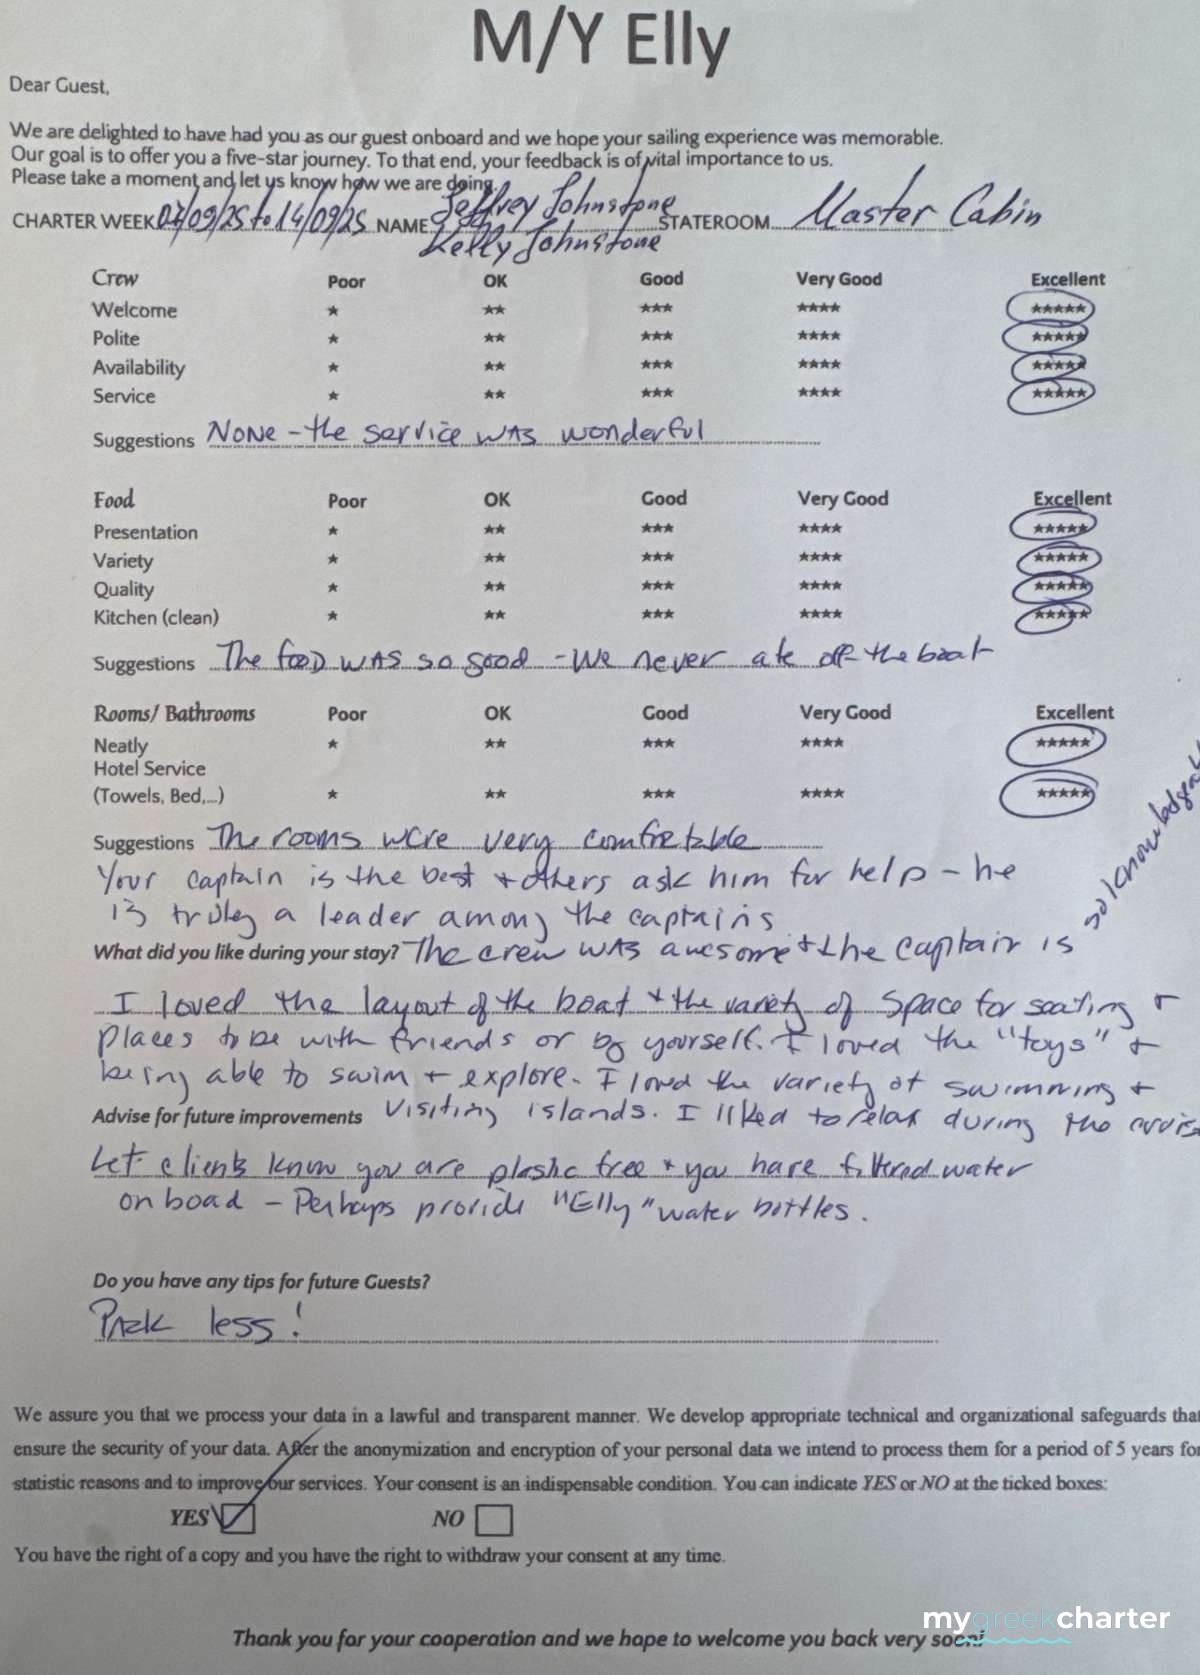 M/Y Elly
Dear Guest,
We are delighted to have had you as our guest onboard and we hope your sailing experience was memorable.
Our goal is to offer you a five-star journey. To that end, your feedback is of vital importance to us.
Please take a moment and let us know how we are doing.
CHARTER WEEK 07/09/25 to 14/09/25 NAME Jeffrey Johnstone STATEROOM Master Cabin
Kelly Johnstone
Crew Poor OK Good Very Good Excellent
Welcome ★ ★★ ★★★ ★★★★ ★★★★★
Polite ★ ★★ ★★★ ★★★★ ★★★★★
Availability ★ ★★ ★★★ ★★★★ ★★★★★
Service ★ ★★ ★★★ ★★★★ ★★★★★
Suggestions NONE - the service was wonderful
Food Poor OK Good Very Good Excellent
Presentation ★ ★★ ★★★ ★★★★ ★★★★★
Variety ★ ★★ ★★★ ★★★★ ★★★★★
Quality ★ ★★ ★★★ ★★★★ ★★★★★
Kitchen (clean) ★ ★★ ★★★ ★★★★ ★★★★★
Suggestions The food was so good - We never ate off the boat
Rooms/ Bathrooms Poor OK Good Very Good Excellent
Neatly ★ ★★ ★★★ ★★★★ ★★★★★
Hotel Service
(Towels, Bed,...) ★ ★★ ★★★ ★★★★ ★★★★★
Suggestions The rooms were very comfretable
Your captain is the best + others ask him for help - he
is truley a leader among the captains
What did you like during your stay? The crew was awesome + the captain is so
I loved the layout of the boat + the variety of space for seating +
places to be with friends or by yourself. I loved the "toys" +
being able to swim + explore. I loved the variety of swimming +
visiting islands. I liked to relax during the
Advise for future improvements
Let clients know you are plastic free + you have filtered water
on boad - Perhaps provide "Elly" water bottles.
Do you have any tips for future Guests?
Pack less!
We assure you that we process your data in a lawful and transparent manner. We develop appropriate technical and organizational safeguards that
ensure the security of your data. After the anonymization and encryption of your personal data we intend to process them for a period of 5 years for
statistic reasons and to improve our services. Your consent is an indispensable condition. You can indicate YES or NO at the ticked boxes:
YES NO
You have the right of a copy and you have the right to withdraw your consent at any time.
mygreekcharter
Thank you for your cooperation and we hope to welcome you back very soon!